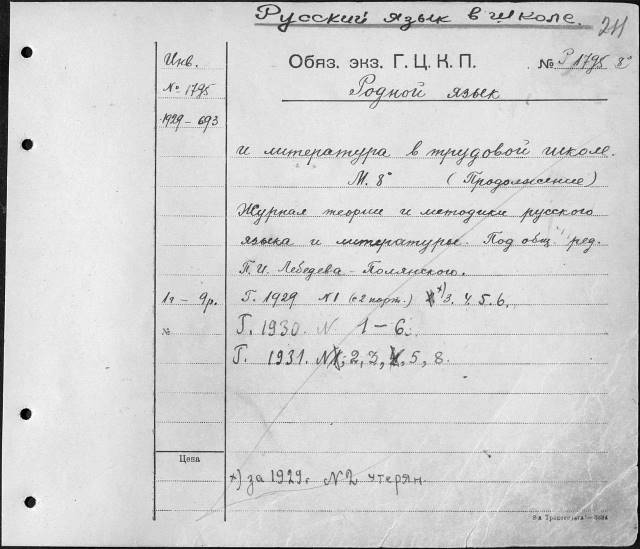 Русский язык в школе.
24
Инв.
№ 1795
1929 – 693
Обяз. экз. Г.Ц.К.П. № Р 1795 8°
Родной язык
и литература в трудовой школе.
М. 8° (Продолжение)
Журнал теории и методики русского
языка и литературы. Под общ. ред.
П. И. Лебедева-Полянского.
1г – 9р. Г. 1929 №1 (с 2 порт.) х) 3. 4. 5. 6.
№ Г. 1930. N 1–6.
Г. 1931. N 1; 2, 3, 4, 5, 8.
Цена
х) за 1929 г N2 утерян.